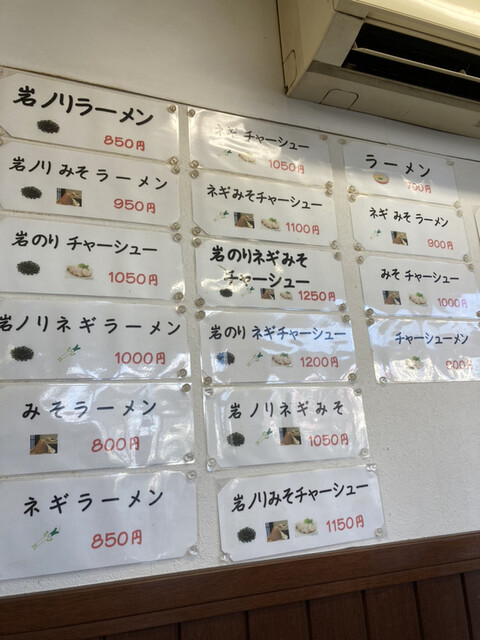 岩ノリラーメン
850円
岩ノリ みそ ラーメン
950円
岩のり チャーシュー
1050円
岩ノリ ネギ ラーメン
1000円
みそ ラーメン
800円
ネギ ラーメン
850円
ネギ チャーシュー
1050円
ネギ みそ チャーシュー
1100円
岩のりネギみそ
チャーシュー
1250円
岩のり ネギチャーシュー
1200円
岩ノリネギみそ
1050円
岩ノリみそチャーシュー
1150円
ラーメン
700円
ネギ みそ ラーメン
900円
みそ チャーシュー
1000円
チャーシューメン